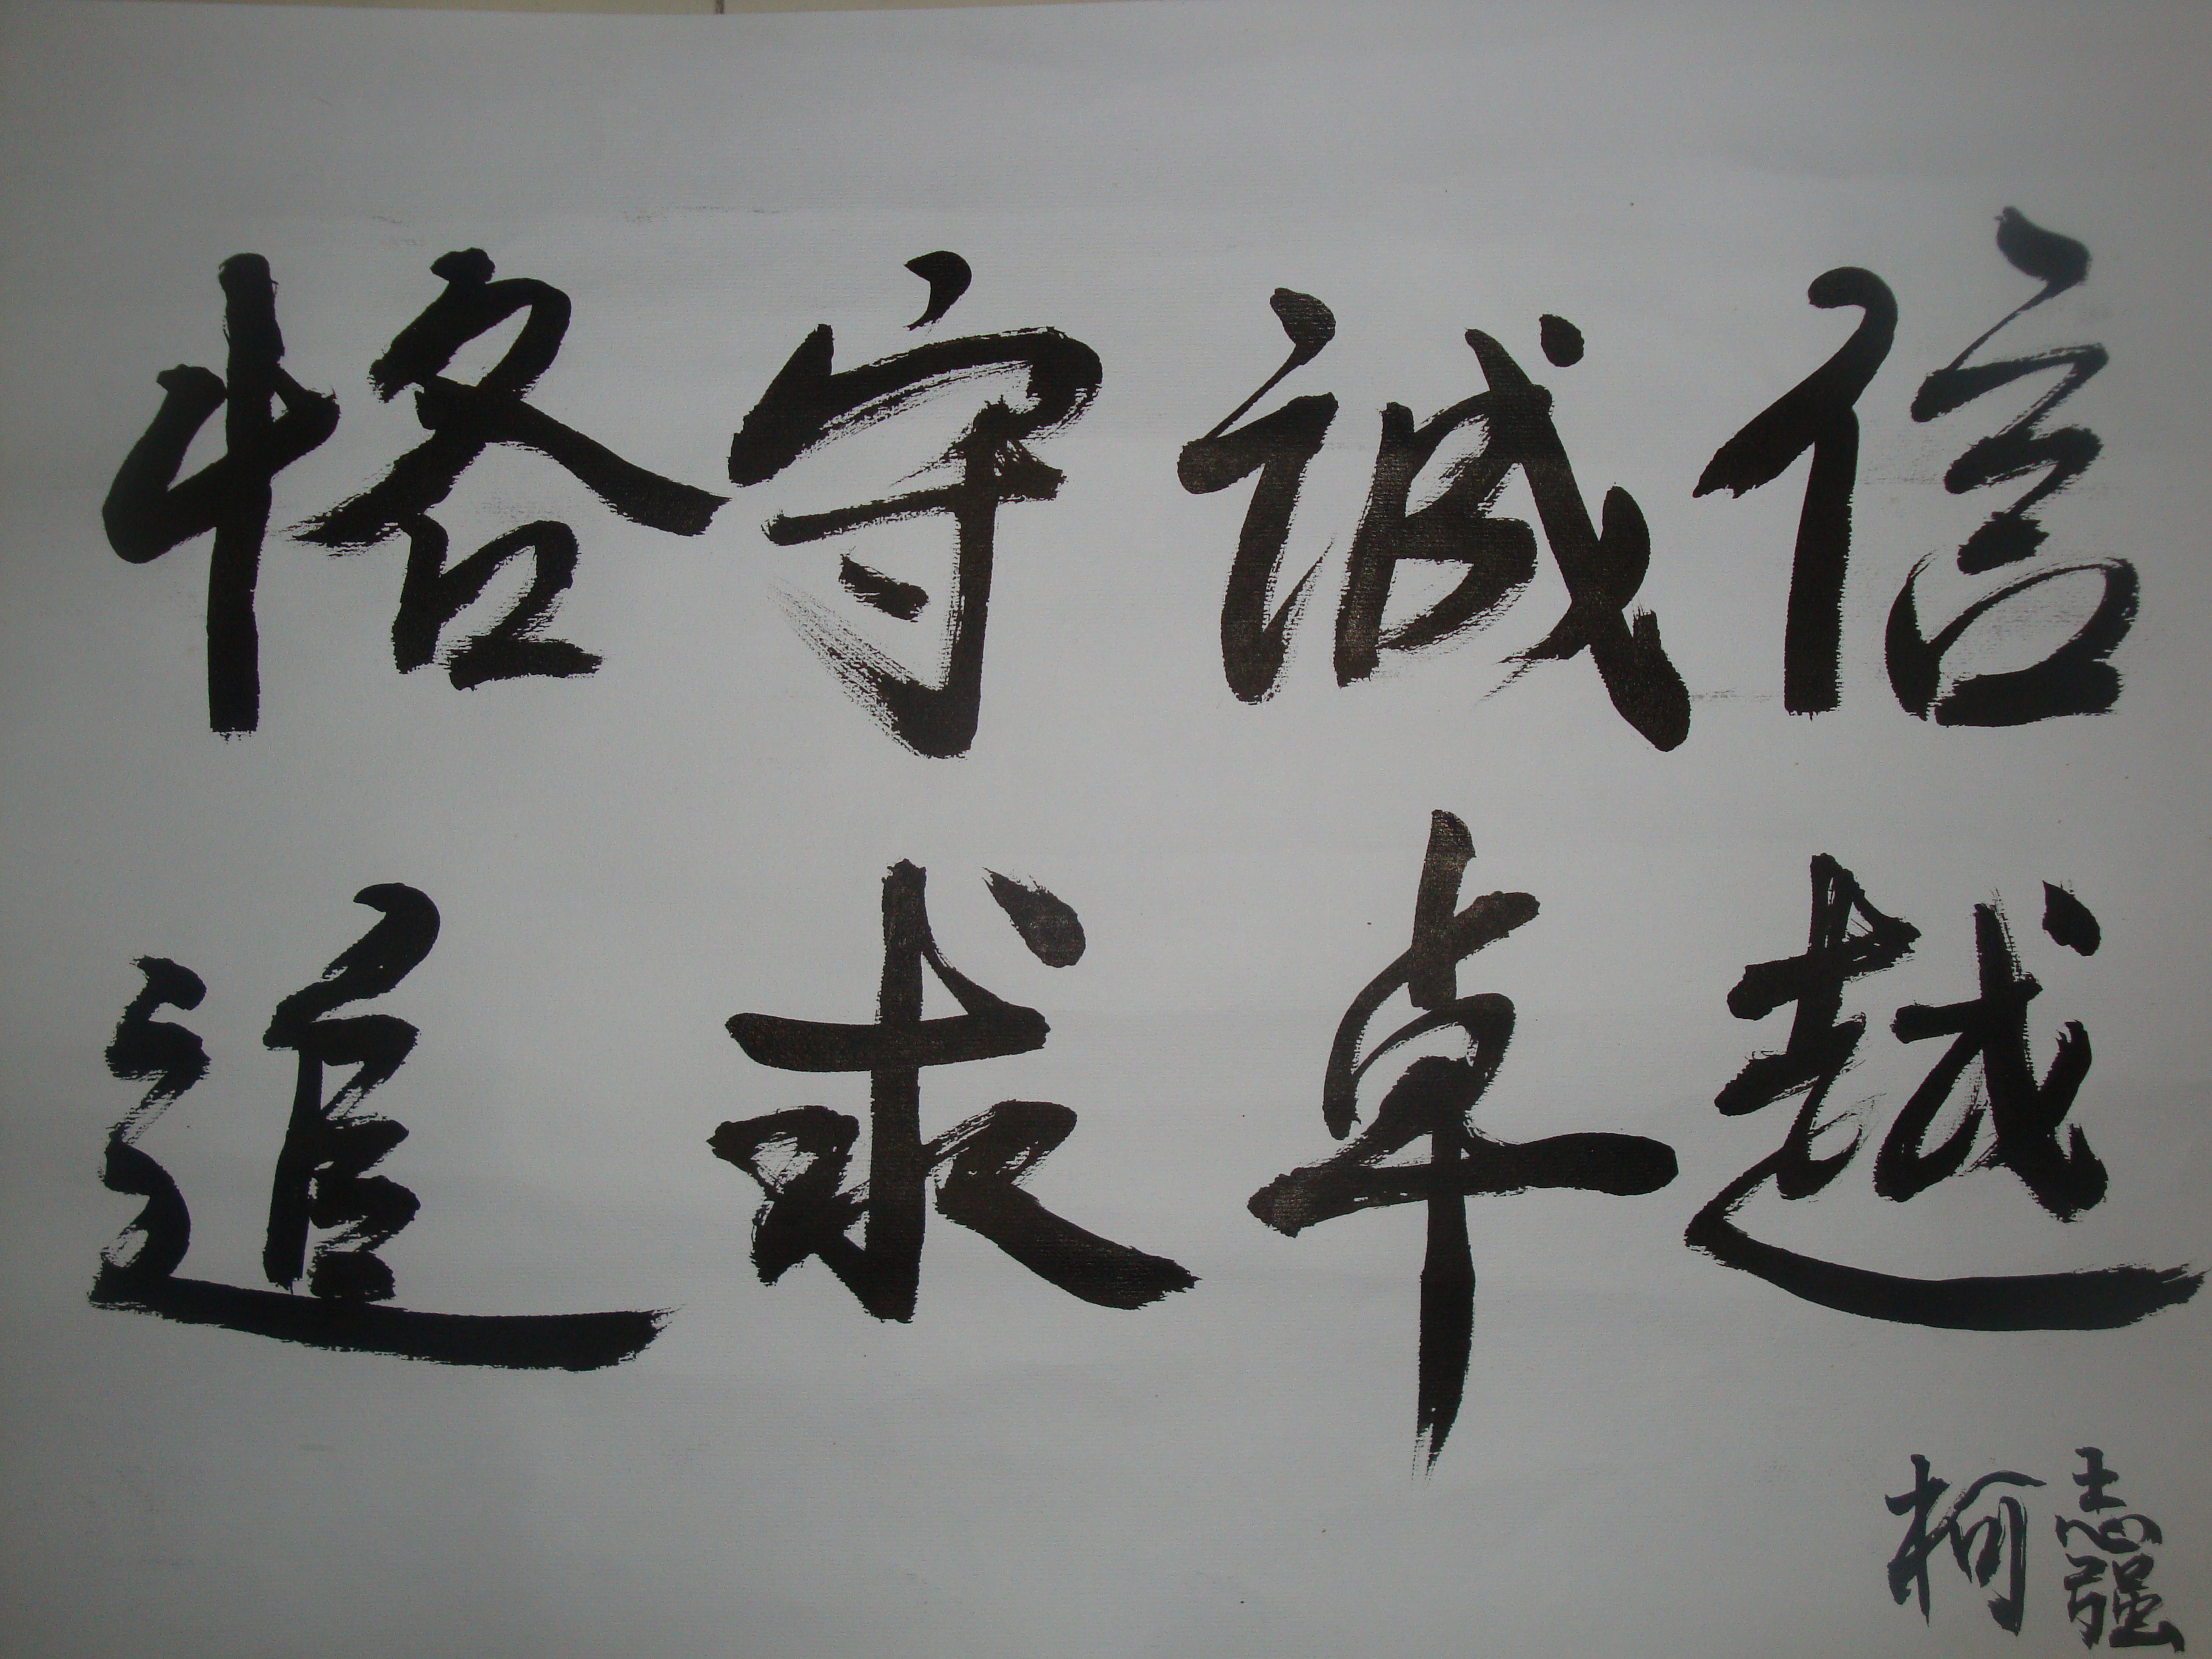 恪守誠信
追求卓越
柯志强